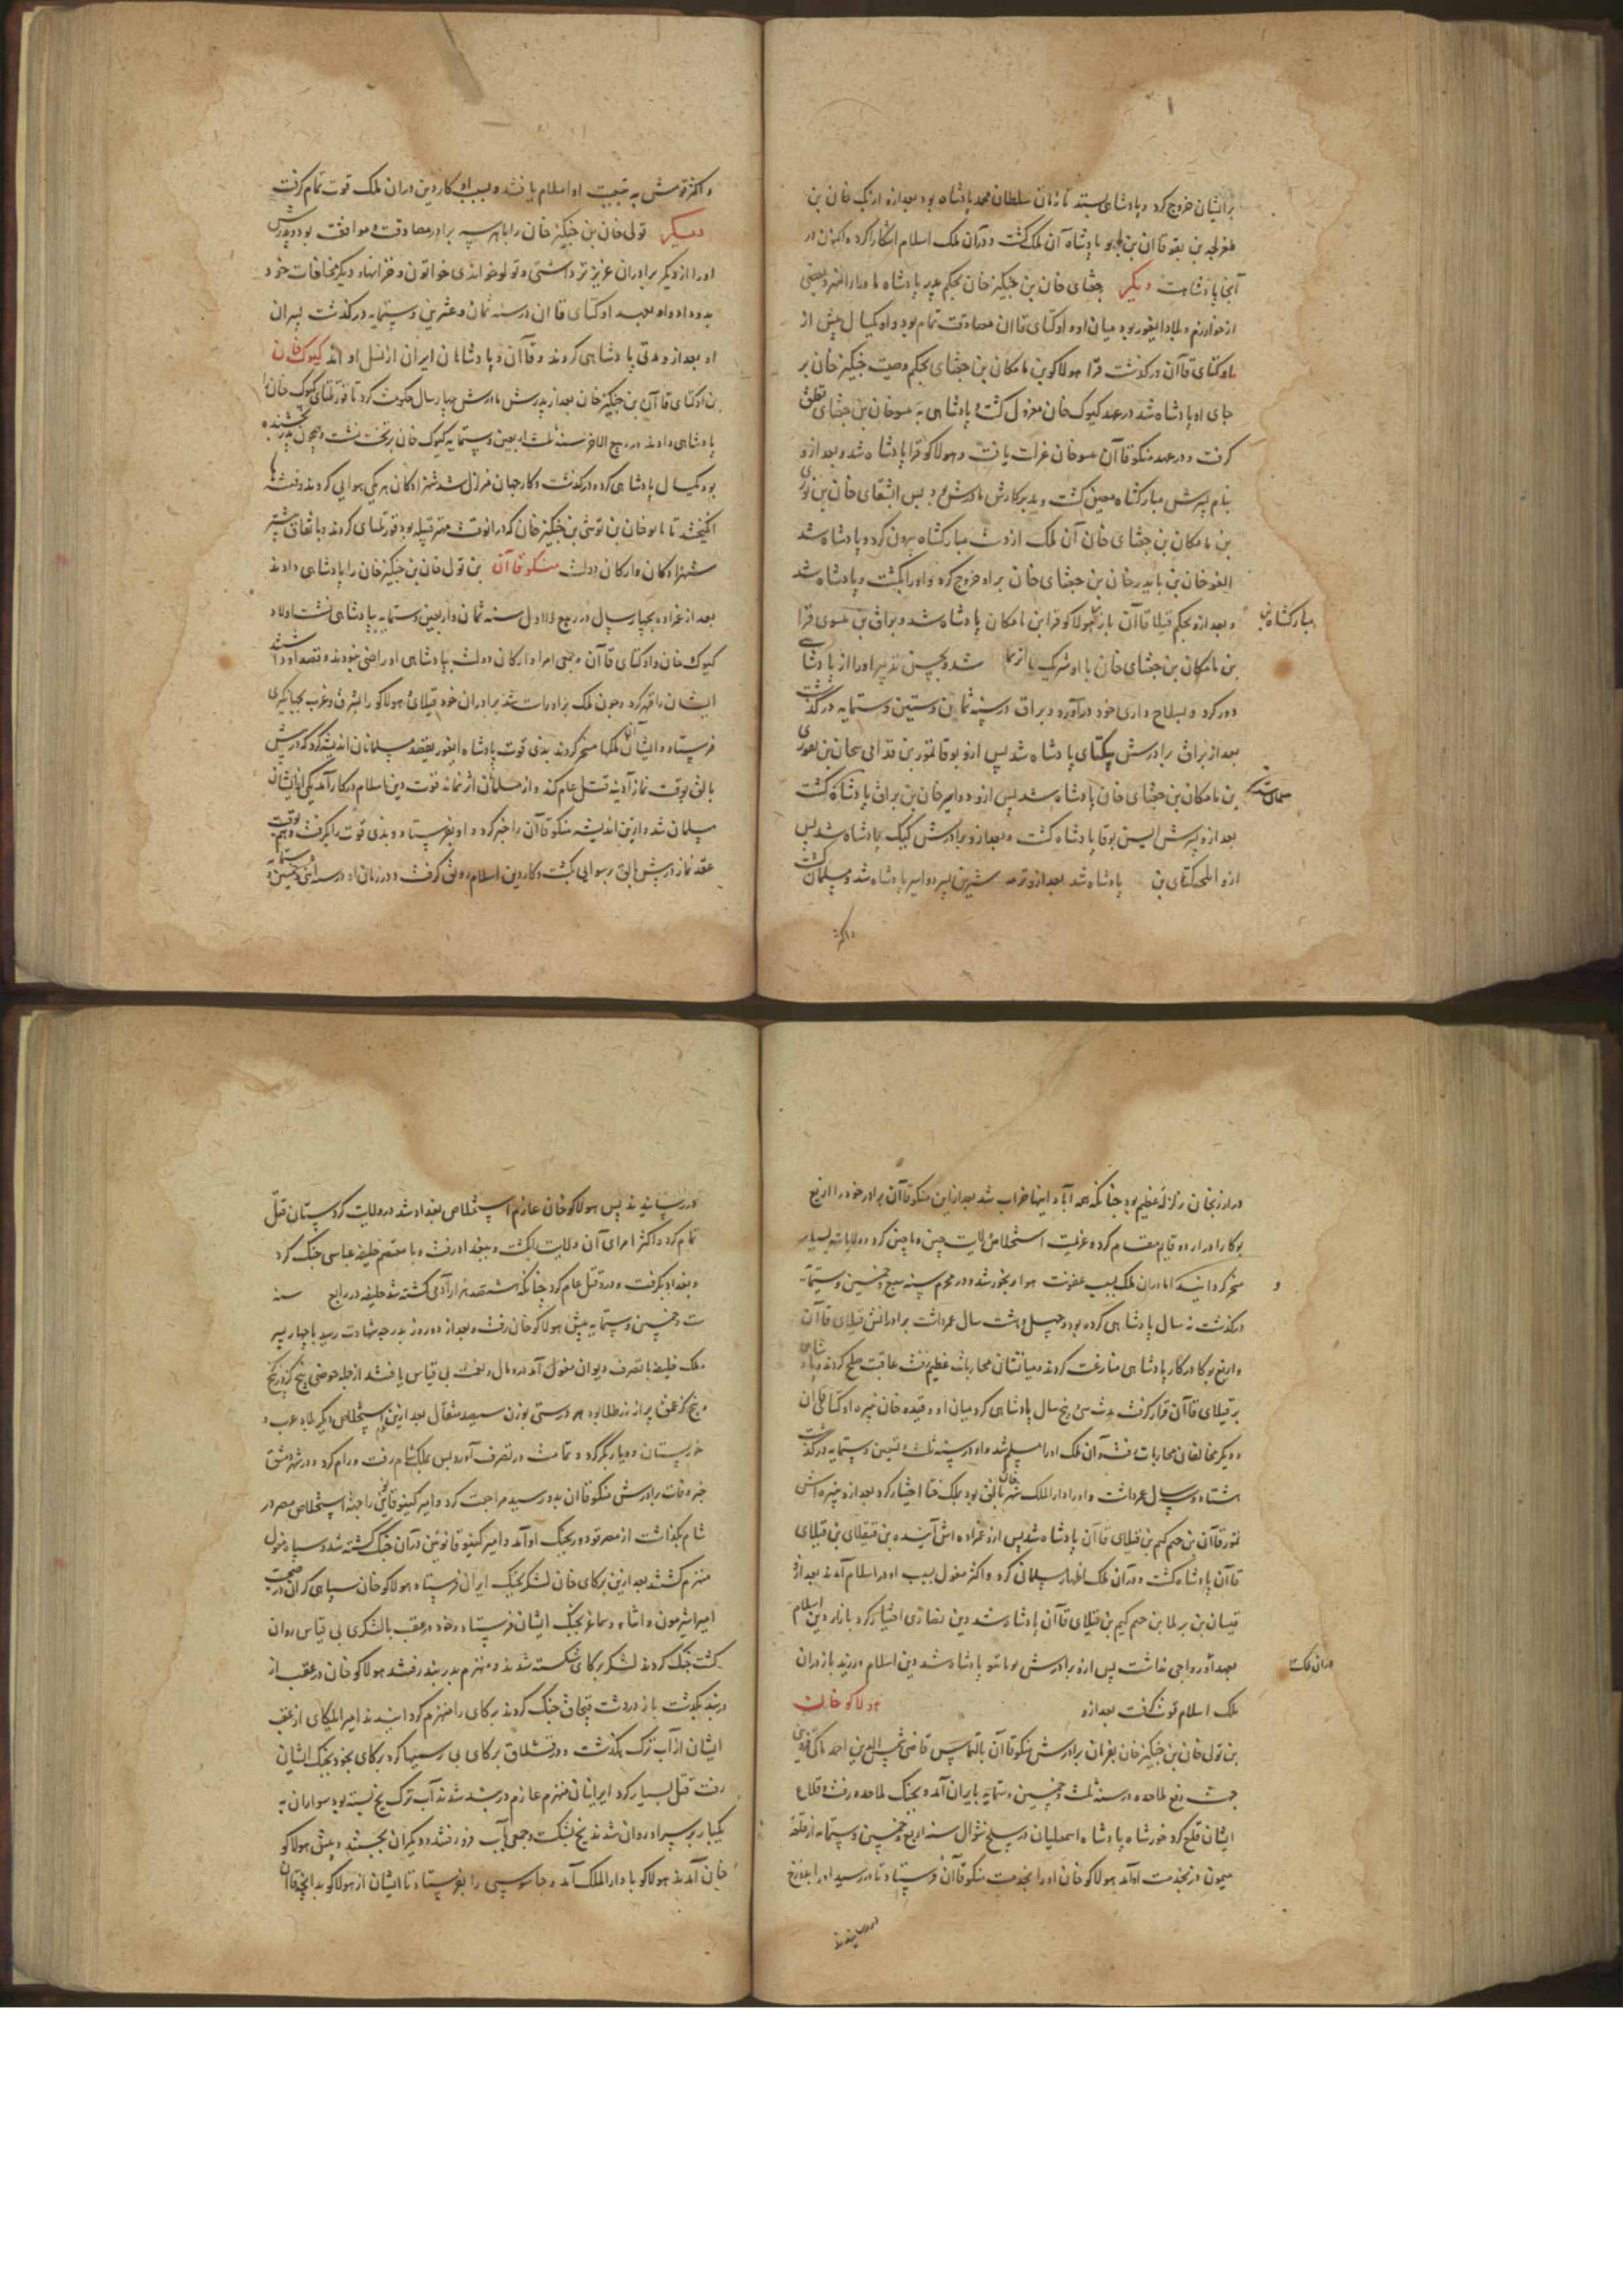 برایشان خروج کرد و پادشاهی بستد تا زمان سلطان محمد پادشاه بود بعد ازو ازبک خان بن
طغرلجه بن بقوقاان بن باتو پادشاه آن ملک گشت و در آن ملک اسلام آشکارا کرد و اکنون در
آنجا پادشاهست دیگر جغتای خان بن جنگیز خان بحکم پدر پادشاه ماوراء النهر و بعضی
از خوارزم و بلاد ایغور بود میان او و اوکتای قاآن مصادقت تمام بود و او یکسال پیش از
اوکتای قاآن درگذشت قرا هولاکو بن مامکان بن جغتای بحکم وصیت جنگیز خان بر
جای او پادشاه شد در عهد کیوک خان معزول گشت و پادشاهی به میسوخان بن جغتای تعلق
گرفت و در عهد منکوقاآن میسوخان عزلت یافت و هولاکو قرا پادشاه شد و بعد ازو
بنام پسرش مبارکشاه معین گشت و مدبر کارش مادرش بود پس الیغای خان بن بوری
بن مامکان بن جغتای خان آن ملک از دست مبارکشاه بیرون کرد و پادشاه شد
الغوخان بن بایدرخان بن جغتای خان برو خروج کرد و او را بکشت و پادشاه شد
و بعد ازو بحکم قبلاقاآن باز هولاکو قرا بن مامکان پادشاه شد و براق بن میسوی قرا
مبارکشاه بن
بن مامکان بن جغتای خان با او شریک شد و بحسن تدبیر او را از پادشاهی
دور کرد و بسلاح داری خود درآورد و براق در سنه ثمان و ستین و ستمایه درگذشت
بعد از براق برادرش بیکتای پادشاه شد پس ازو بوقا تمور بن قدامی سحان بن بوری
بن مامکان بن جغتای خان پادشاه شد پس ازو دواسرخان بن براق پادشاه گشت
بعد ازو پسرش ایسن بوقا پادشاه گشت و بعد ازو برادرش کبک پادشاه شد پس
ازو ایلجیکتای بن پادشاه شد بعد ازو ترمه شیرین پسر دواسر پادشاه شد و مسلمان گشت
و اکثر
و اکثر قومش به تبعیت او اسلام یافتند و بسبب او کار دین در آن ملک قوت تمام گرفت
دیگر تولی خان بن جنگیز خان را با هر سه برادر مصادقت و موافقت بود و پدرش
او را از دیگر برادران عزیزتر داشتی و تولوخو خواندی خواتون و خزاین‌ها و دیگر مخلفات خود
بدو داد و او بعهد اوکتای قاان در سنه ثمان و عشرین و ستمایه درگذشت پسران
او بعد ازو مدتی پادشاهی کردند و قاآن و پادشاهان ایران از نسل او اند کیوک خان
بن اوکتای قاآن بن جنگیز خان بعد از پدرش مادرش چهار سال حکومت کرد تا قورلتای کیوک خان را
پادشاهی دادند در ربیع الاخر سنه ثلث اربعین و ستمایه کیوک خان بر تخت نشست و همچون پدر بخشنده
بود یکسال پادشاهی کرد و درگذشت و کار جهان متزلزل شد شهزادگان هر یکی هوایی کردند و فتنه‌ها
انگیختند تا باتوخان بن توشی بن جنگیز خان که در آنوقت مهتر قبیله بود قورلتای کردند و باتفاق بیشتر
شهزادگان و ارکان دولت منکوقاآن بن تولی خان بن جنگیز خان را پادشاهی دادند
بعد از غزاده بچهار سال در ربیع الاول سنه ثمان و اربعین و ستمایه پادشاهی نشست اولاد
کیوک خان و اوکتای قاآن و جمعی امرا و ارکان دولت بپادشاهی او راضی نبودند و قصد او داشتند
ایشان را قهر کرد و چون ملک برو راست شد برادران خود قبلای و هولاکو را بشرق و غرب بجهانگیری
فرستاد و ایشان آن ملکها مسخر کردند بدی قوت پادشاه ایغور بقصد مسلمانان اندیشه کرد که در بیش
بالق بوقت نماز آدینه قتل عام کند و از مسلمانان اثر نماند قوت دین اسلام در کار آمد یکی از ایشان
مسلمان شد و ازین اندیشه منکوقاآن را خبر کرد و او بفرستاد و بدی قوت را بگرفت و هم بوقت
عقد نماز در بیش بالق برسوایی بکشت و کار دین اسلام رونق گرفت و در زمان او در سنه اثنی و خمسین و ستمایه
در ارزنجان زلزله عظیم بود چنانکه همه آبادانیها خراب شد بعد ازین منکوقاآن برادر خود را اریغ
بوکا را در اردو قایم مقام کرد و عزیمت استخلاص ولایت چین و ماچین کرد و ولایات بسیار
مسخر گردانید اما در آن ملک بسبب عفونت هوا رنجور شد و در محرم سنه سبع و خمسین و ستمایه
و
درگذشت نه سال پادشاهی کرده بود و چهل و هشت سال عمر داشت برادرانش قبلای قاآن
و اریغ بوکا در کار پادشاهی منازعت کردند و میانشان محاربات عظیم رفت عاقبت صلح کردند و پادشاهی
بر قبلای قاآن قرار گرفت مدت سی و پنج سال پادشاهی کرد میان او و قیدو خان نبیره اوکتای قاان
و دیگر مخالفان محاربات رفت و آن ملک او را مسلم شد و او در سنه ثلث و تسعین و ستمایه درگذشت
هشتاد و سه سال عمر داشت و او را دارالملک شهر خان بالق بود بملک ختا اختیار کرد بعد ازو نبیره اش
تمورقاآن بن حیم کیم بن قبلای قاآن پادشاه شد پس ازو عمزاده اش آننده بن منقلای بن قبلای
قاآن پادشاه گشت و در آن ملک اظهار مسلمانی کرد و اکثر مغول بسبب او در اسلام آمدند بعد ازو
قیسان بن برلما بن حیم کیم بن قبلای قاآن پادشاه شد دین نصاری اختیار کرد بازار دین اسلام
بعهد او رواجی نداشت پس ازو برادرش بویانتو پادشاه شد دین اسلام ورزید باز در آن
در آن ملک
ملک اسلام قوت گرفت بعد ازو هولاکو خان
بن تولی خان بن جنگیز خان بفرمان برادرش منکوقاآن بالتماس قاضی شمس الدین احمد ماکی قزوینی
جهت دفع ملاحده در سنه ثلث و خمسین و ستمایه بایران آمد و بجنگ ملاحده رفت و قلاع
ایشان قلع کرد خورشاه پادشاه اسمعیلیان در سلخ شوال سنه اربع و خمسین و ستمایه از قلعه
میمون دز بخدمت او آمد هولاکو خان او را بخدمت منکوقاآن فرستاد تا در رسید او را بدوزخ
در رسانیدند
در رسانیدند پس هولاکو خان عازم استخلاص بغداد شد در ولایت کردستان قتل
تمام کرد و اکثر امرای آن ولایت را بکشت و ببغداد رفت و با معتصم خلیفه عباسی جنگ کرد
و بغداد بگرفت و درو قتل عام کرد چنانکه هشتصد هزار آدمی کشته شد خلیفه در رابع سنه
ست و خمسین و ستمایه پیش هولاکو خان رفت و بعد از دو روز بدرجه شهادت رسید با چهار پسر
ملک خلیفه با تصرف دیوان مغول آمد و مال و نعمت بی قیاس یافتند از جمله حوضی پنج گز در پنج
و پنج گز عمق پر از زر طلا بود هر درستی بوزن سیصد مثقال بعد ازین استخلاص دیگر بلاد عرب و
خوزستان و دیار بکر کرد و تمامت در تصرف آورد پس بملک شام رفت و رام کرد و در شهر دمشق
خبر وفات برادرش منکوقاان بدو رسید مراجعت کرد و امیر کیتوقا نوین را جهة استخلاص مصر در
شام بگذاشت از مصر قودوز بجنگ او آمد و امیر کیتوقا نوین در آن جنگ کشته شد و سپاه مغول
منهزم گشتند بعد ازین برکای خان لشکر بجنگ ایران فرستاد هولاکو خان سپاهی گران در صحبت
امیر شیرمون و اباتاء و سماغر بجنگ ایشان فرستاد و خود در عقب با لشکری بی قیاس روان
گشت جنگ کردند لشکر برکای شکسته شدند و منهزم بدربند رفتند هولاکو خان در عقب از
دربند بگذشت باز در دشت قبچاق جنگ کردند برکای را منهزم گردانیدند امیر ایلکای از عقب
ایشان از آب ترک بگذشت و در قشلاق برکای بی رسمیها کرد برکای بخود بجنگ ایشان
رفت قتل بسیار کرد ایرانیان منهزم عازم دربند شدند آب ترک یخ بسته بود سواران به
یکبار بر سر او روان شدند یخ بشکست و جمعی بآب فرو رفتند و دیگران بجستند و پیش هولاکو
خان آمدند هولاکو با دارالملک آمد و جاسوسی را بفرستاد تا ایشان از هولاکو بدانچه قاان